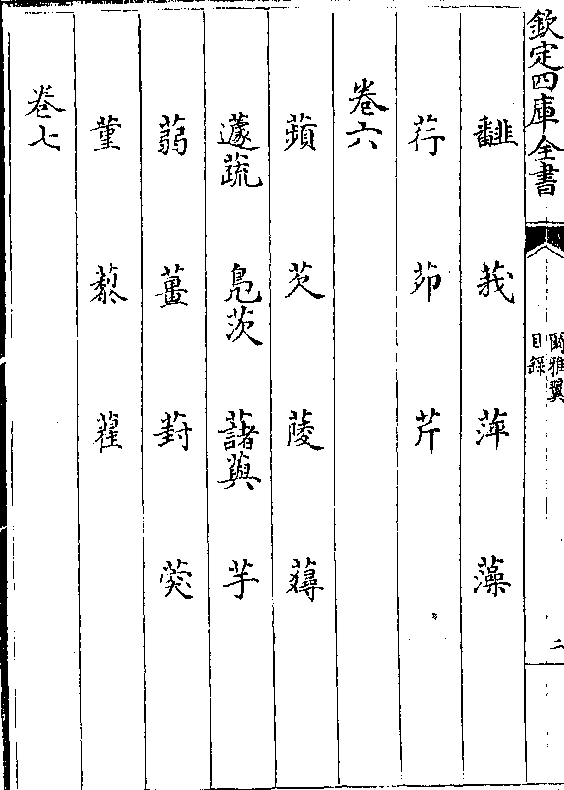 欽定四庫全書
爾雅翼
目錄
二
莪 萍 藻
荇 茆 芹
卷六
蘋 芡 䔖 蕁
蘧蔬 鳧茨 藷藇 芋
蒻 薑 葑 葖
菫 藜 藋
卷七